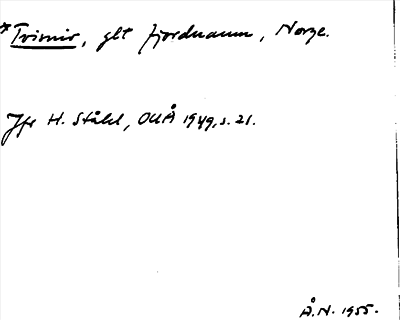 *Tvimir, glt fjordnamn, Norge.
Jfr H. Ståhl, OUÅ 1949, s. 21.
Å.N. 1955.